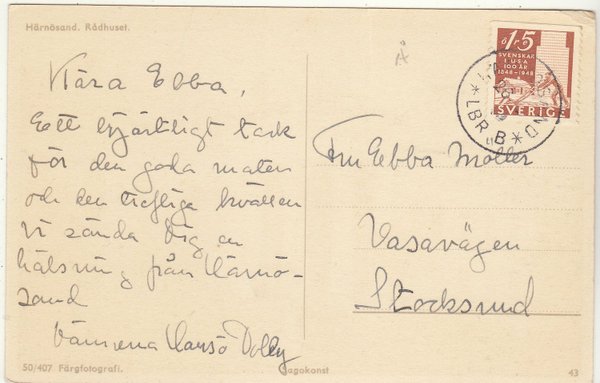 Härnösand. Rådhuset.
Kära Ebba,
Ett hjärtligt tack
för den goda maten
och den trefliga kvällen
Vi sända Dig en
hälsning från Härnö-
sand
Vännerna Dolly
50/407 Färgfotografi.
Å
ö 15
SVENSKAR
I USA
100 ÅR
1848-1948
SVERIGE
*LBR B*
Fru Ebba Möller
Vasavägen
Stocksund
Sagokonst
43